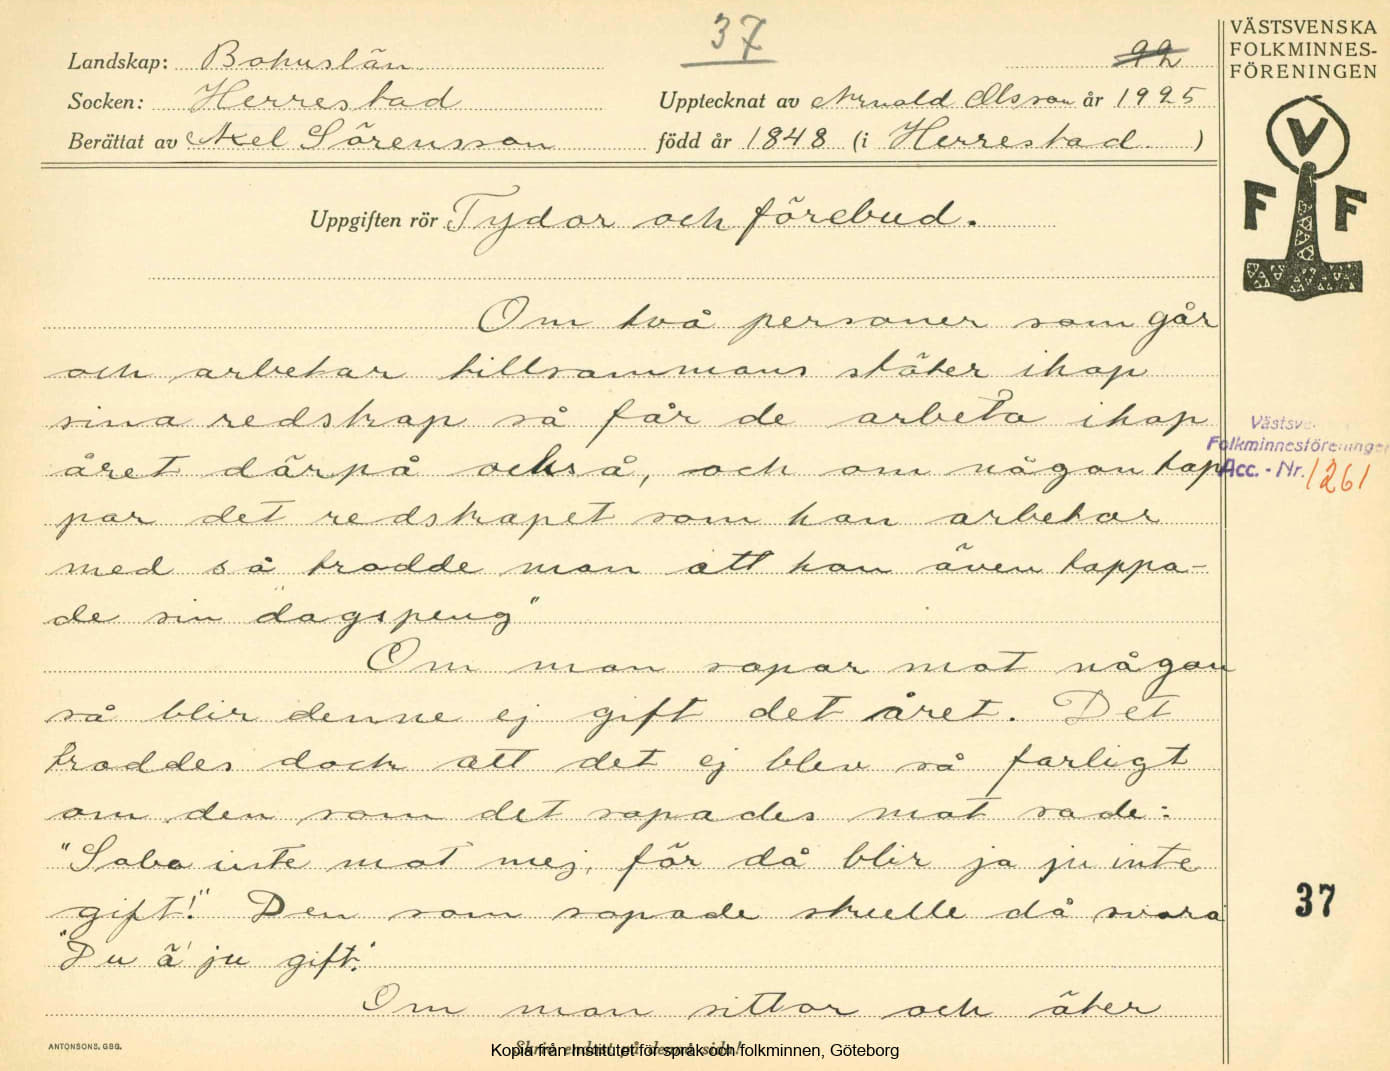 37
22
VÄSTSVENSKA
FOLKMINNES-
FÖRENINGEN
Landskap: Bohuslän
Socken: Herrestad Upptecknat av Arnold Olsson år 1925
Berättat av Axel Sörensson född år 1848 (i Herrestad )
V
F F
Uppgiften rör Tydor och förebud.
Om två personer som går
och arbetar tillsammans stöter ihop
sina redskap så får de arbeta ihop
året därpå också, och om någon tap
par det redskapet som han arbetar
med så trodde man att han även tappa-
de sin "dagspeng"
Om man sopar mot någon
så blir denne ej gift det året. Det
troddes dock att det ej blev så farligt
om den som det sopades mot sade:
"Soba inte mot mej, för då blir ja ju inte
gift!" Den som sopade skulle då svara
"Du ä' ju gift."
Om man sitter och äter
Västsve
Folkminnesföreningen
Acc. - Nr. 1261
37
ANTONSONS, GBG.
Skriv endast på denna sida!
Kopia från Institutet för språk och folkminnen, Göteborg